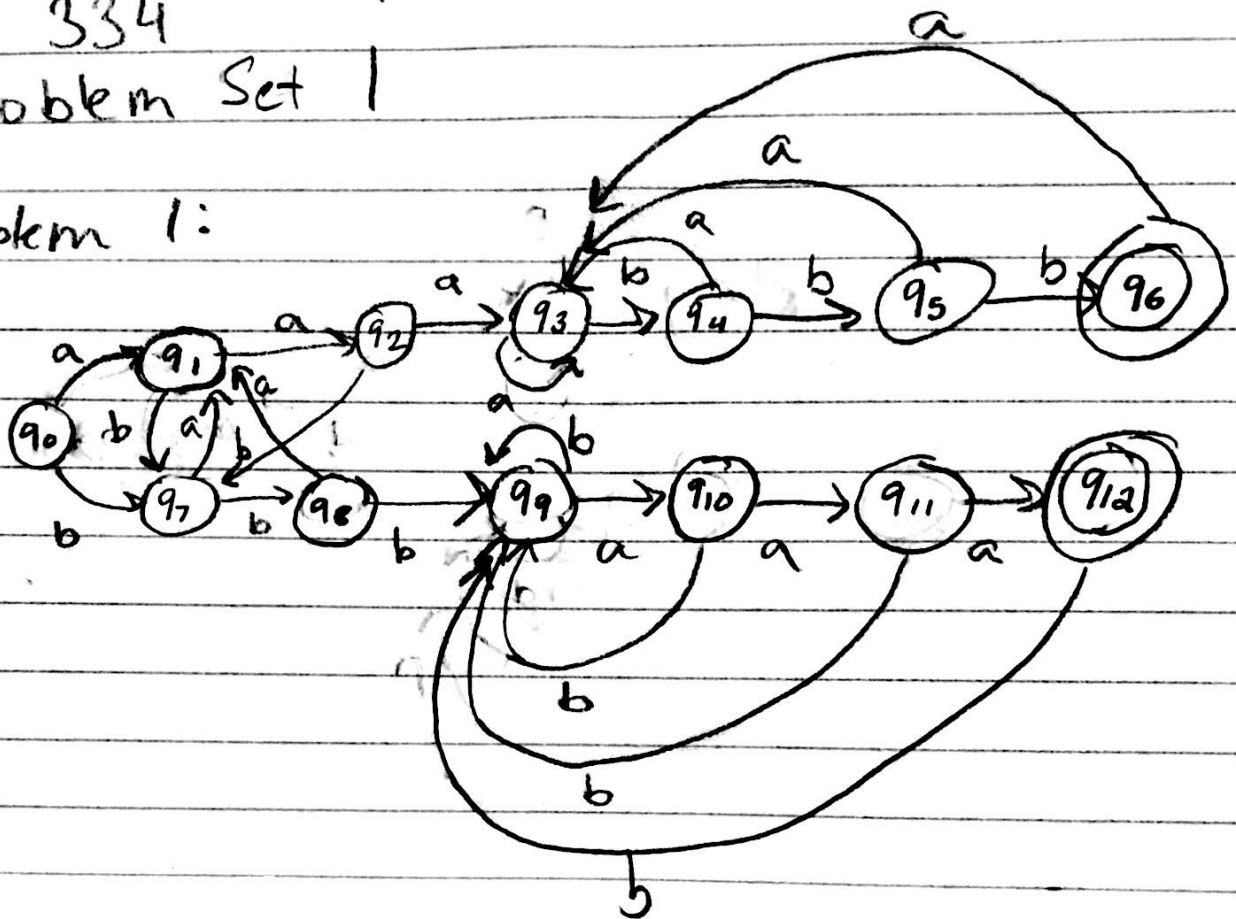 334
oblem Set 1
blem 1:
a
a
a
a b b b
q3 q4 q5 q6
a q2
a q1 a
q0 b a b
a b
q7 b q8 b q9 a q10 a q11 a q12
b
b
b
b